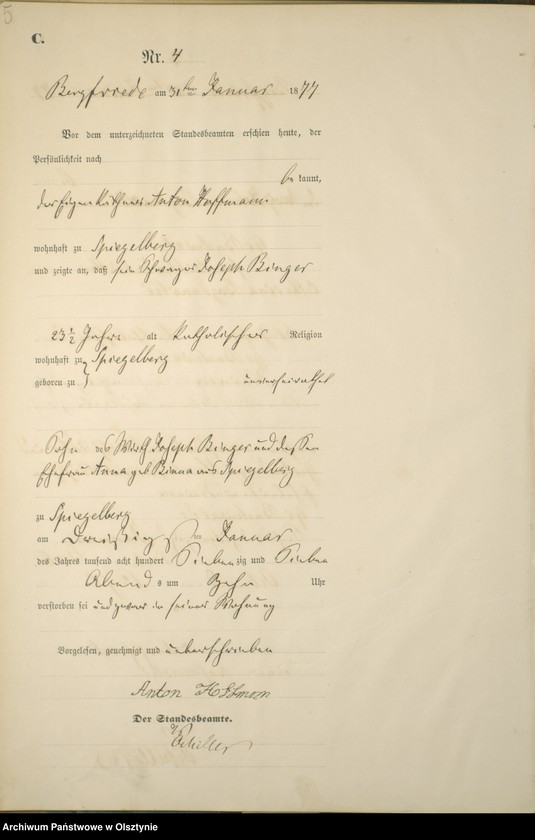 5
C.
Nr. 4
Bergfriede am 31ten Januar 1877
Vor dem unterzeichneten Standesbeamten erschien heute, der
Persönlichkeit nach
be kannt,
der Eigenkäthner Anton Hoffmann
wohnhaft zu Spiegelberg
und zeigte an, daß sein Schwager Joseph Binger
23 1/2 Jahre alt katholischer Religion
wohnhaft zu } Spiegelberg
geboren zu } unverheirathet
Sohn des Wirth Joseph Binger und dessen
Ehefrau Anna geb aus Spiegelberg
zu Spiegelberg
am Dreißigsten Januar
des Jahres tausend acht hundert Siebenzig und Sieben
Abend s um Zehn Uhr
verstorben sei und zwar in seiner Wohnung
Vorgelesen, genehmigt und unterschrieben
Anton
Der Standesbeamte.
Schiller
Archiwum Państwowe w Olsztynie